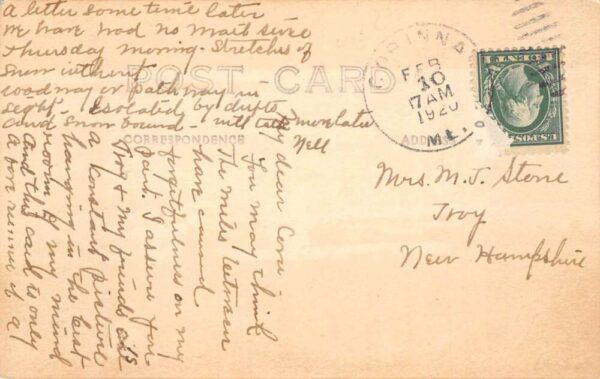 My dear Cora:
You may think
The miles between
have caused
forgetfulness on my
part. I assure you
Thing & my friends are
a constant picture
hanging in the best
room of my mind
And this card is only
a fore runner of a
a letter some time later
We have had no mail since
thursday morning - Stretches of
Snow without
roadway or pathway in
sight - Isolated by drifts
and Snow bound - will tell more later
Nell
POST CARD
CORRESPONDENCE
ADDRESS
CORINNA
FEB
10
7 AM
1920
ME.
1 CENT 1
U.S. POSTAGE
Mrs. M. J. Stone
Troy
New Hampshire